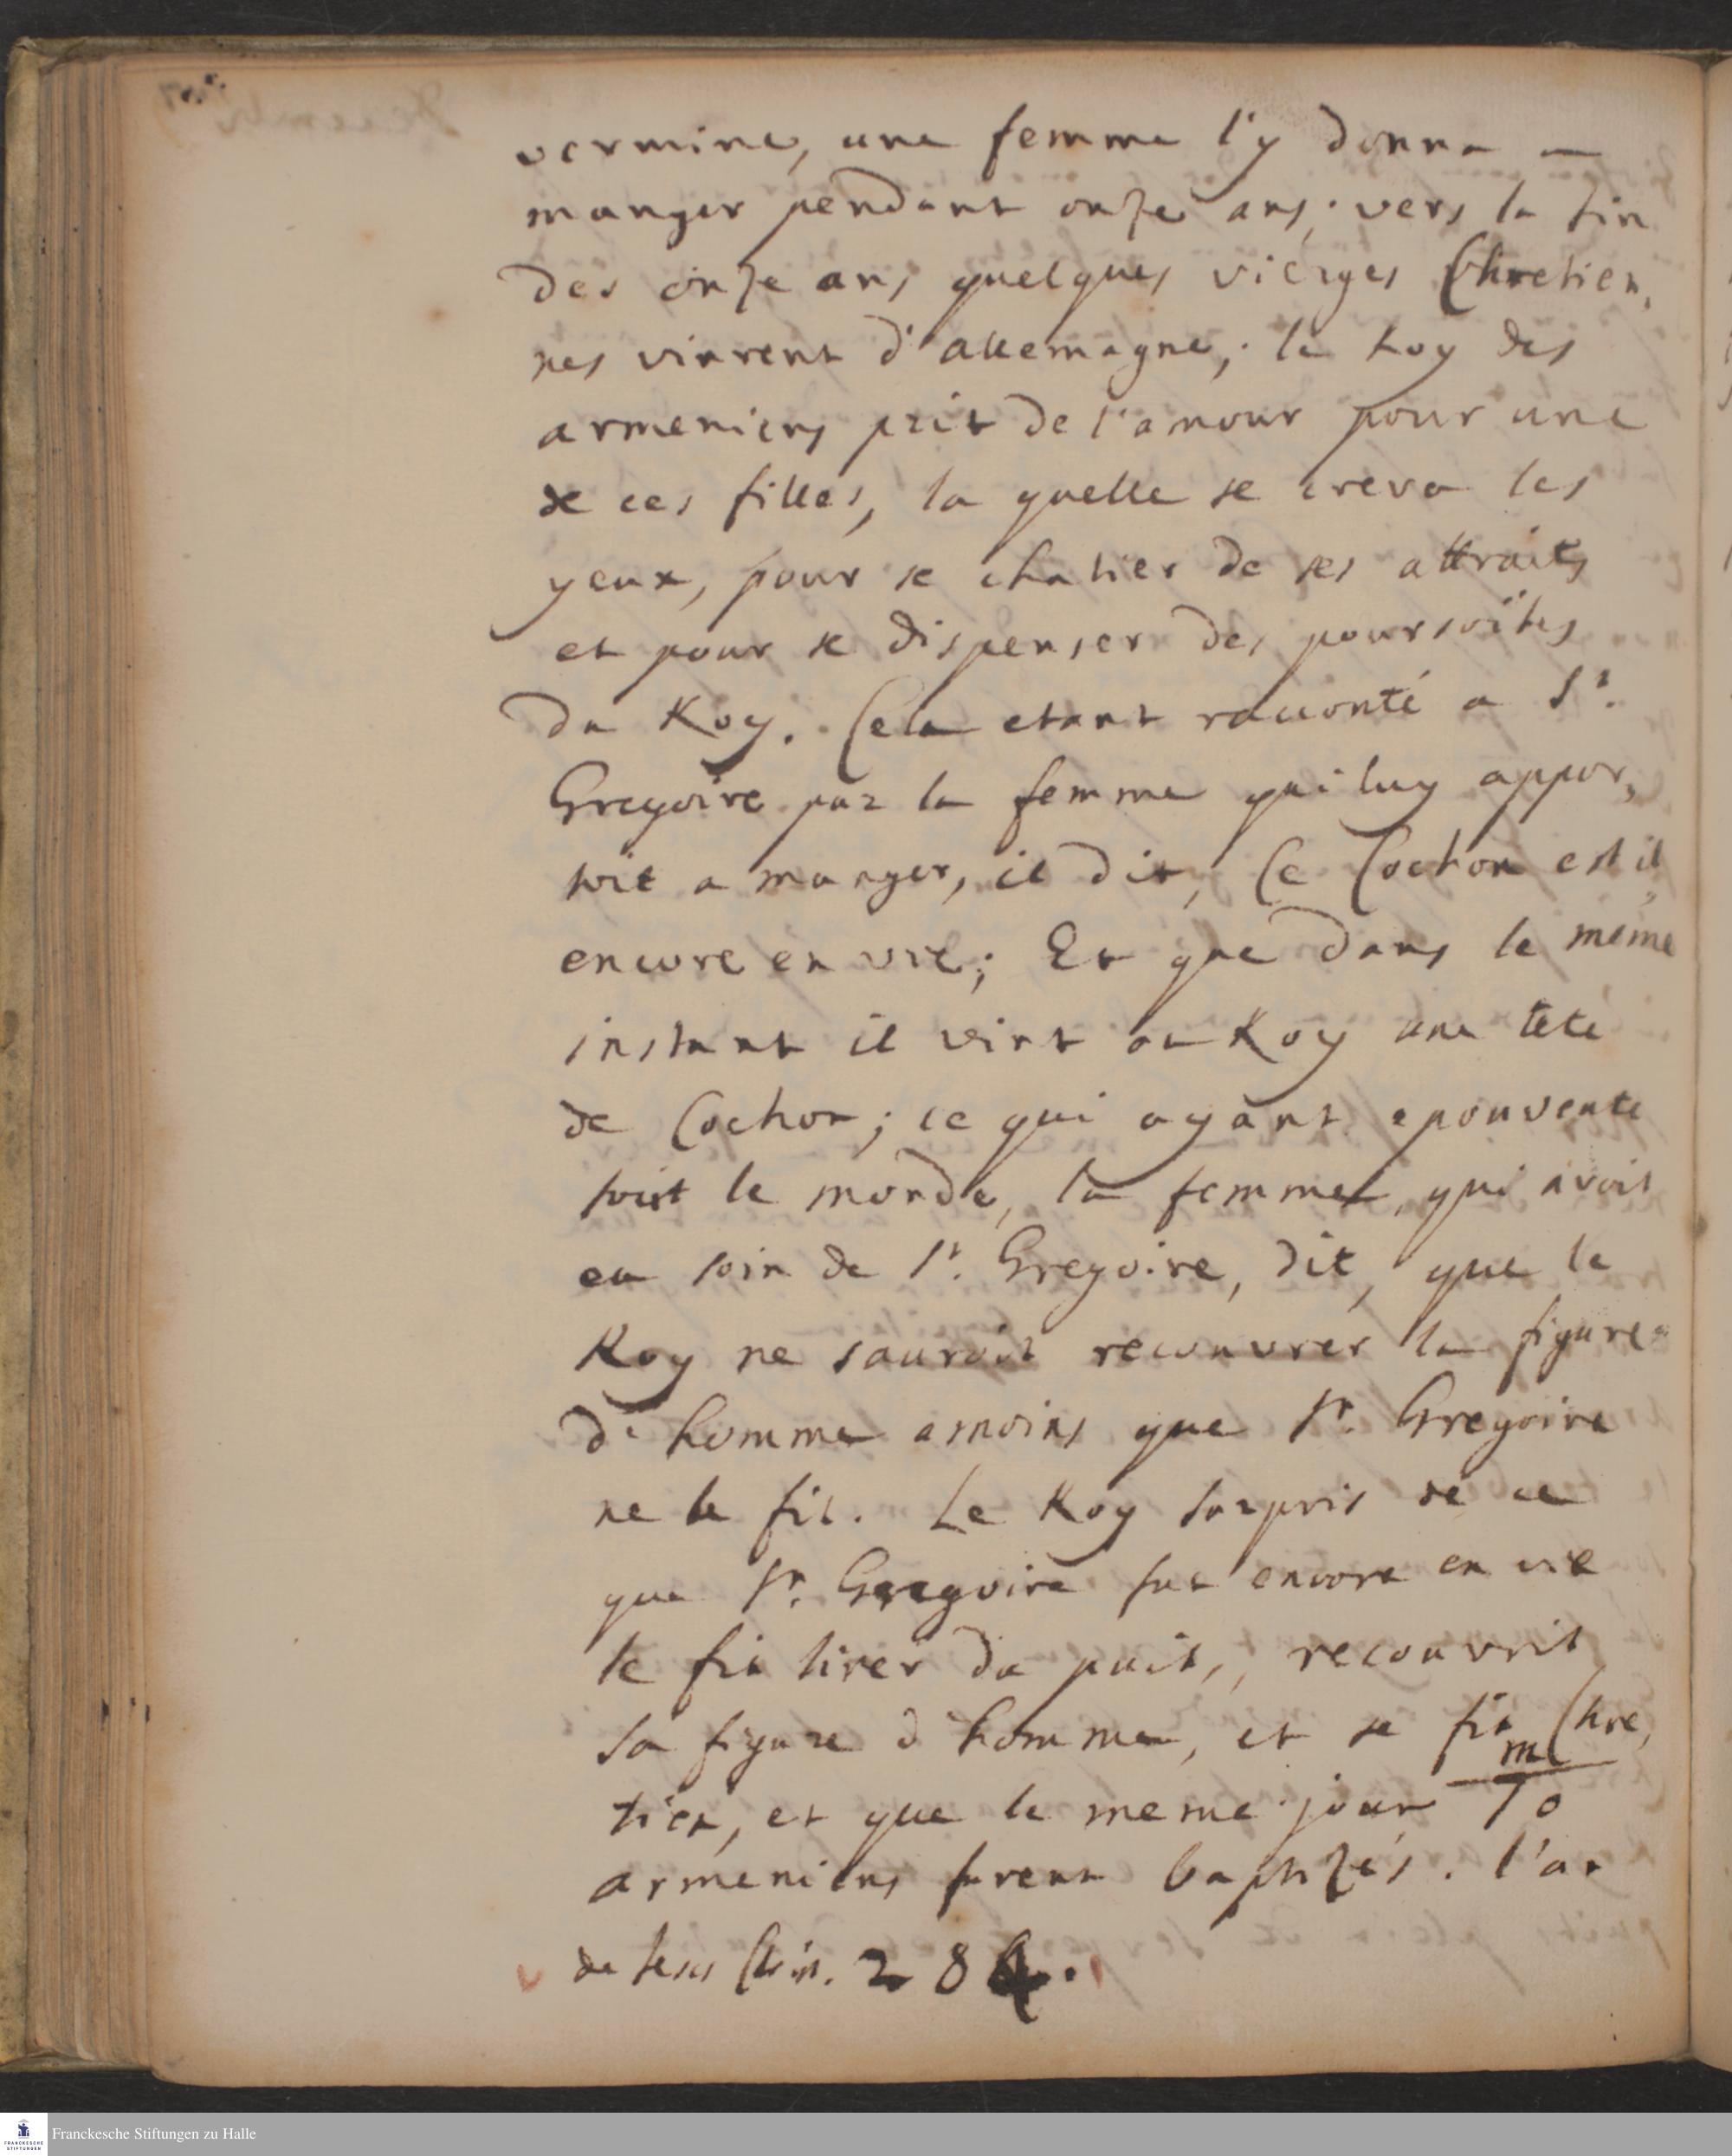 vermine, une femme l'y donna —
manger pendant onze ans; vers la fin
des onze ans quelques vierges Chretien,
nes vinrent d'allemagne; le Roy des
armeniens prit de l'amour pour une
de ces filles, la quelle se creva les
yeux, pour se chatier de ses attraits
et pour se dispenser des poursoites
du Roy. Cela etant raconté a St.
Gregoire par la femme qui luy appor,
toit a manger, il dit, Ce Cochon est il
encore en vie; Et que dans le même
instant il vint au Roy une tete
de Cochon; ce qui ayant epouventé
tout le monde, la femme, qui avoit
eu soin de St. Gregoire, dit, que le
Roy ne sauroit recouvrer la figure
d'homme amoins que St. Gregoire
ne le fit. Le Roy surpris de ce
que St. Gregoire fut encore en vie
le fit tirer du puit, recouvrit
sa figure d'homme, et se fit Chre,
tien, et que le meme jour m/70
armeniens furent baptizés. l'an
de Jesus Chri. 284.
Franckesche Stiftungen zu Halle
FRANCKESCHE
STIFTUNGEN